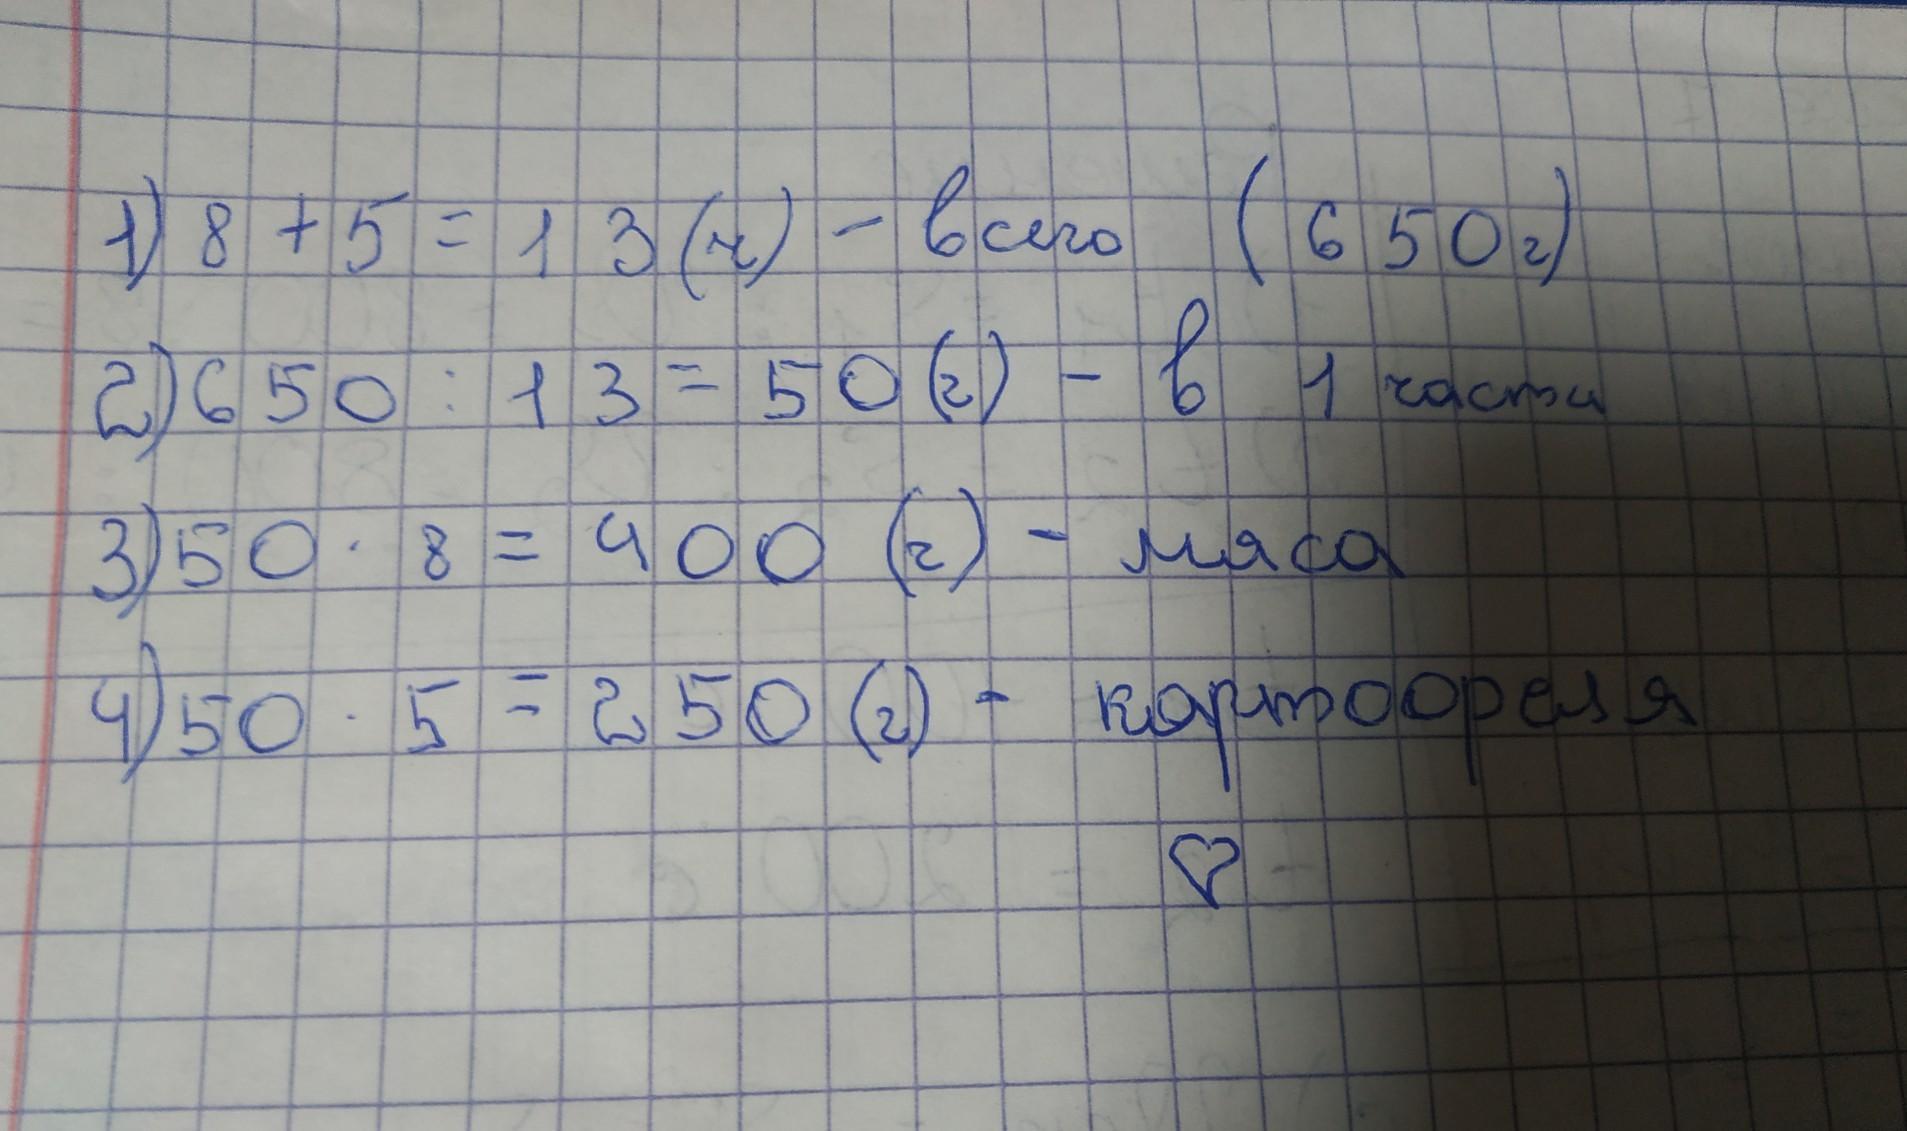 1) 8 + 5 = 13 (ч) - всего (650г)
2) 650 : 13 = 50 (г) - в 1 части
3) 50 · 8 = 400 (г) - мяса
4) 50 · 5 = 250 (г) - картофеля